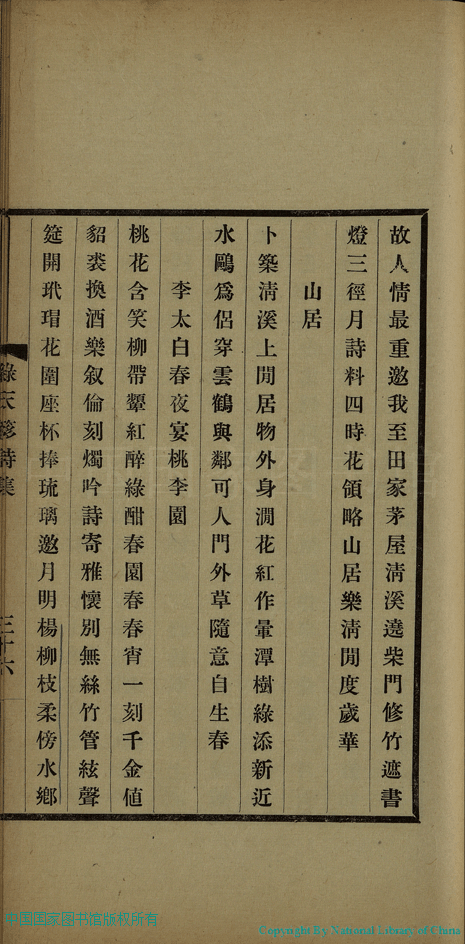 故人情最重邀我至田家茅屋清溪遶柴門修竹遮書
燈三徑月詩料四時花領略山居樂清閒度歲華
山居
卜築清溪上閒居物外身澗花紅作暈潭樹綠添新近
水鷗爲侶穿雲鶴與鄰可人門外草隨意自生春
李太白春夜宴桃李園
桃花含笑柳帶顰紅醉綠酣春園春春宵一刻千金値
貂裘換酒樂叙倫刻燭吟詩寄雅懷別無絲竹管絃聲
筵開玳瑁花圍座杯捧琉璃邀月明楊柳枝柔傍水鄉
綠天
詩集
三十六
中国国家图书馆版权所有
Copyright By National Library of China